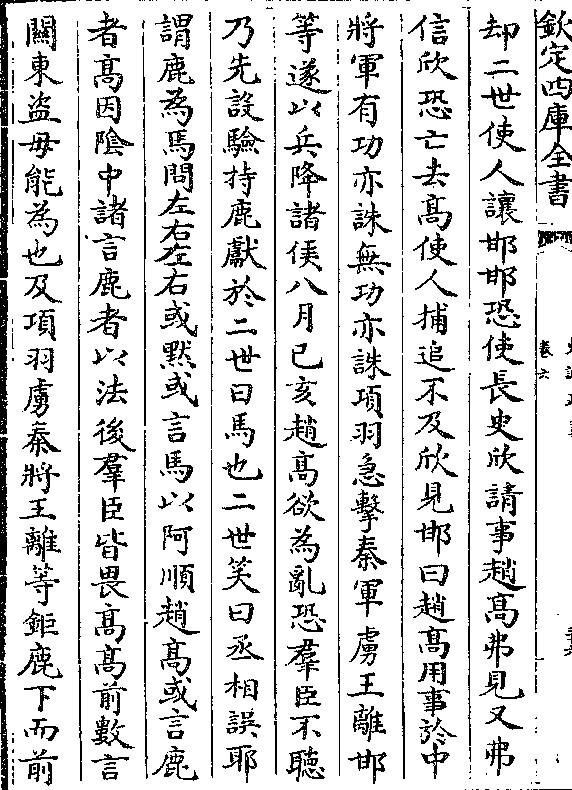 欽定四庫全書
卷六
却二世使人讓邯邯恐使長史欣請事趙髙弗見又弗
信欣恐亡去髙使人捕追不及欣見邯曰趙髙用事於中
將軍有功亦誅無功亦誅項羽急擊秦軍虜王離邯
等遂以兵降諸侯八月己亥趙髙欲為亂恐羣臣不聽
乃先設驗持鹿獻於二世曰馬也二世笑曰丞相誤耶
謂鹿為馬問左右左右或黙或言馬以阿順趙髙或言鹿
者髙因陰中諸言鹿者以法後羣臣皆畏髙髙前數言
關東盗毋能為也及項羽虜秦將王離等鉅鹿下而前